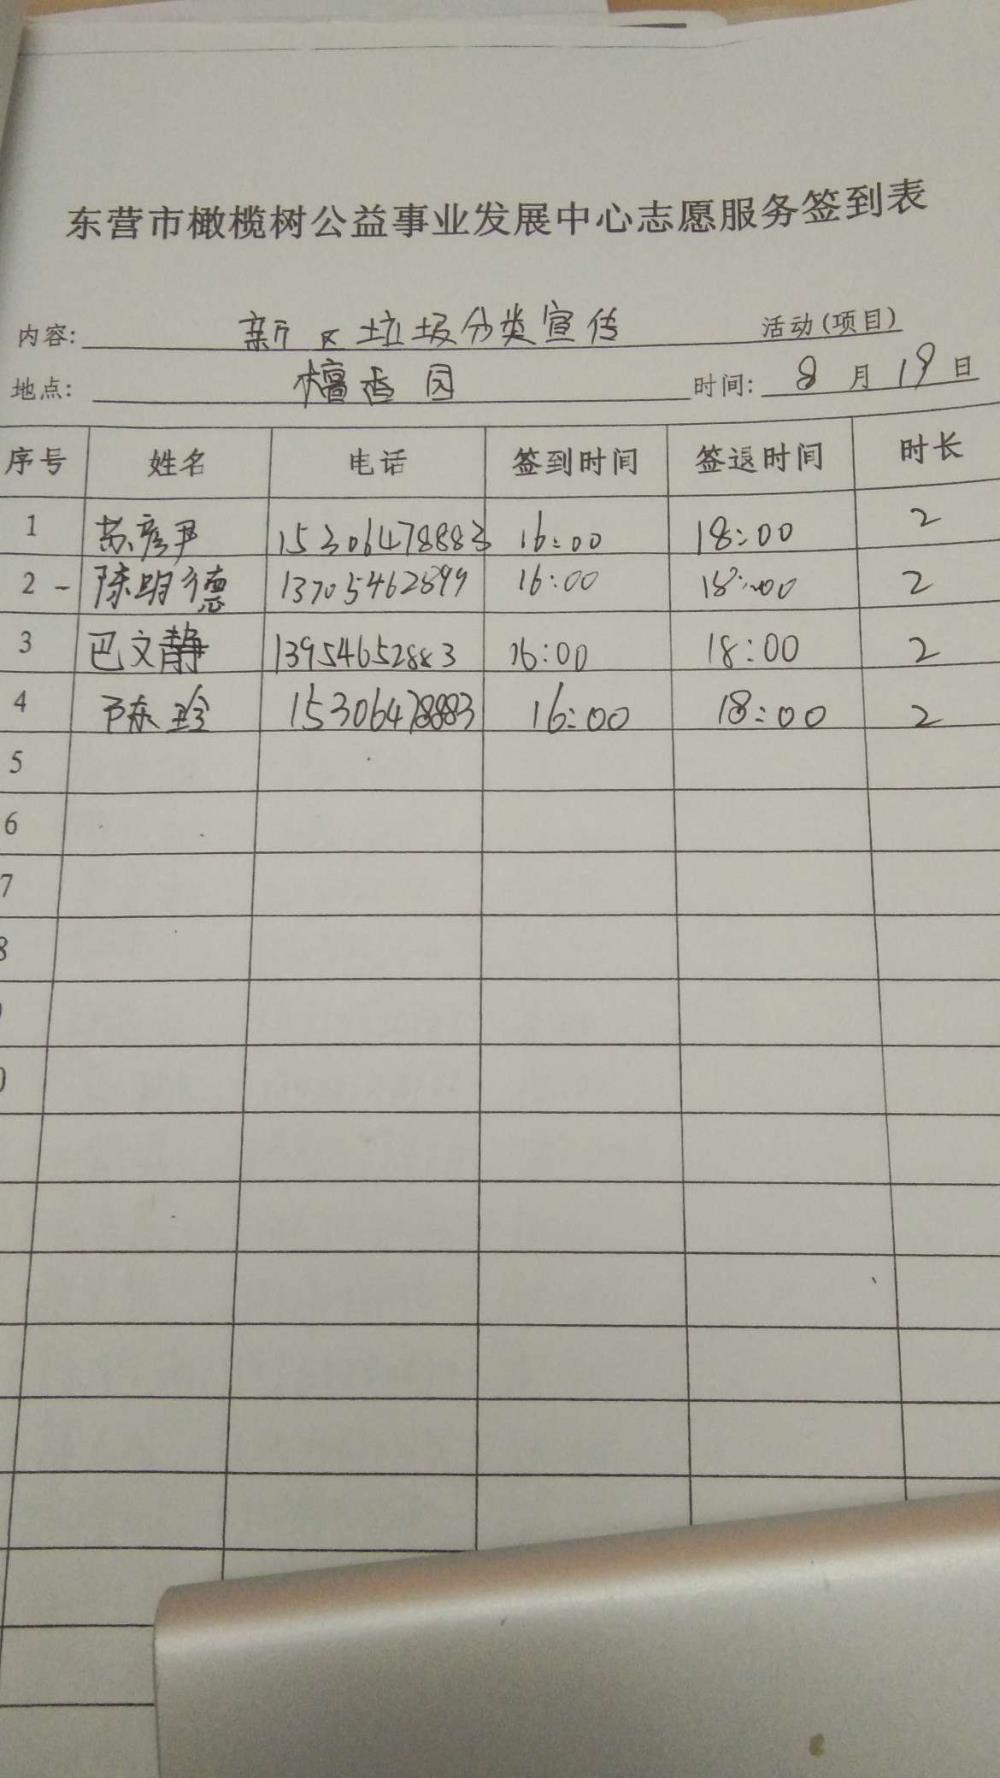 东营市橄榄树公益事业发展中心志愿服务签到表
内容: 新区垃圾分类宣传 活动(项目)
地点: 檀香园 时间: 8月19日
序号 姓名 电话 签到时间 签退时间 时长
1 苏彦尹 15306478883 16:00 18:00 2
2 陈明德 13705462899 16:00 18:00 2
3 巴文静 13954652883 16:00 18:00 2
4 陈玲 15306478883 16:00 18:00 2
5
6
7
8